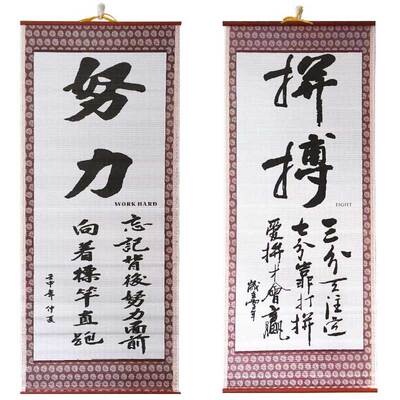 努力
WORK HARD
忘記背後努力面前
向着標竿直跑
壬申年 仲夏
拼搏
FIGHT
三分天注定
七分靠打拼
愛拼才會贏